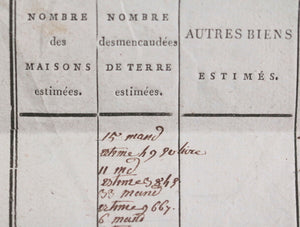 NOMBRE
des
MAISONS
estimées.
NOMBRE
desmencaudées
DE TERRE
estimées.
AUTRES BIENS
ESTIMÉS.
15 mand
estime 49
11 md
estime 3848
33 mand
estime 9667.
6 mand